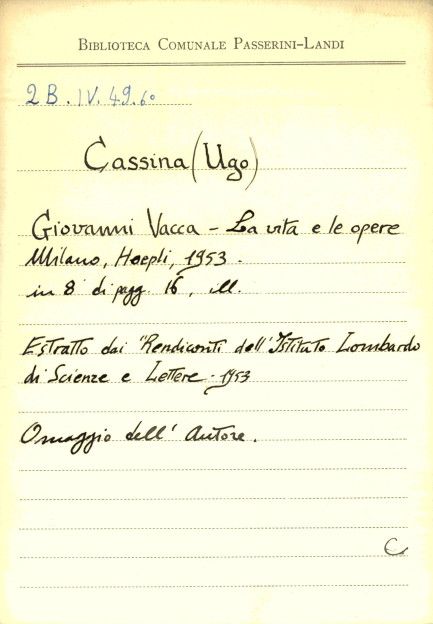 BIBLIOTECA COMUNALE PASSERINI-LANDI
2B.IV.49.60
Cassina (Ugo)
Giovanni Vacca - La vita e le opere
Milano, Hoepli, 1953.
in 8° di pagg. 16, ill.
Estratto dai "Rendiconti dell'Istituto Lombardo
di Scienze e Lettere - 1953
Omaggio dell'Autore.
C